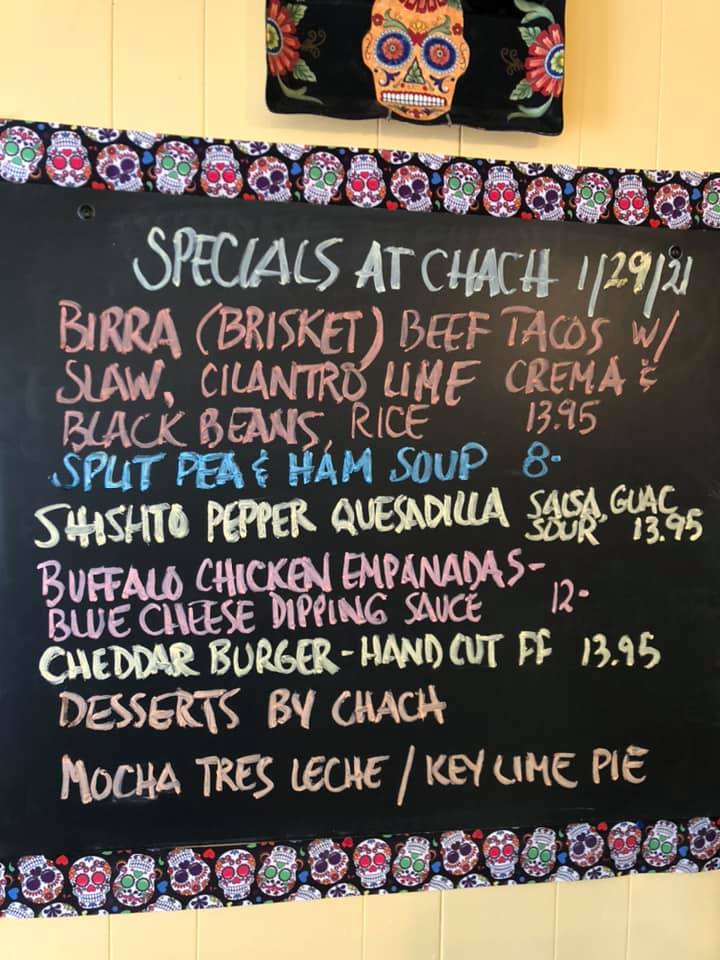 SPECIALS AT CHACH 1/29/21
BIRRA (BRISKET) BEEF TACOS W/
SLAW, CILANTRO LIME CREMA &
BLACK BEANS, RICE 13.95
SPLIT PEA & HAM SOUP 8-
SHISHITO PEPPER QUESADILLA SALSA, GUAC
SOUR 13.95
BUFFALO CHICKEN EMPANADAS-
BLUE CHEESE DIPPING SAUCE 12-
CHEDDAR BURGER - HAND CUT FF 13.95
DESSERTS BY CHACH
MOCHA TRES LECHE / KEY LIME PIE